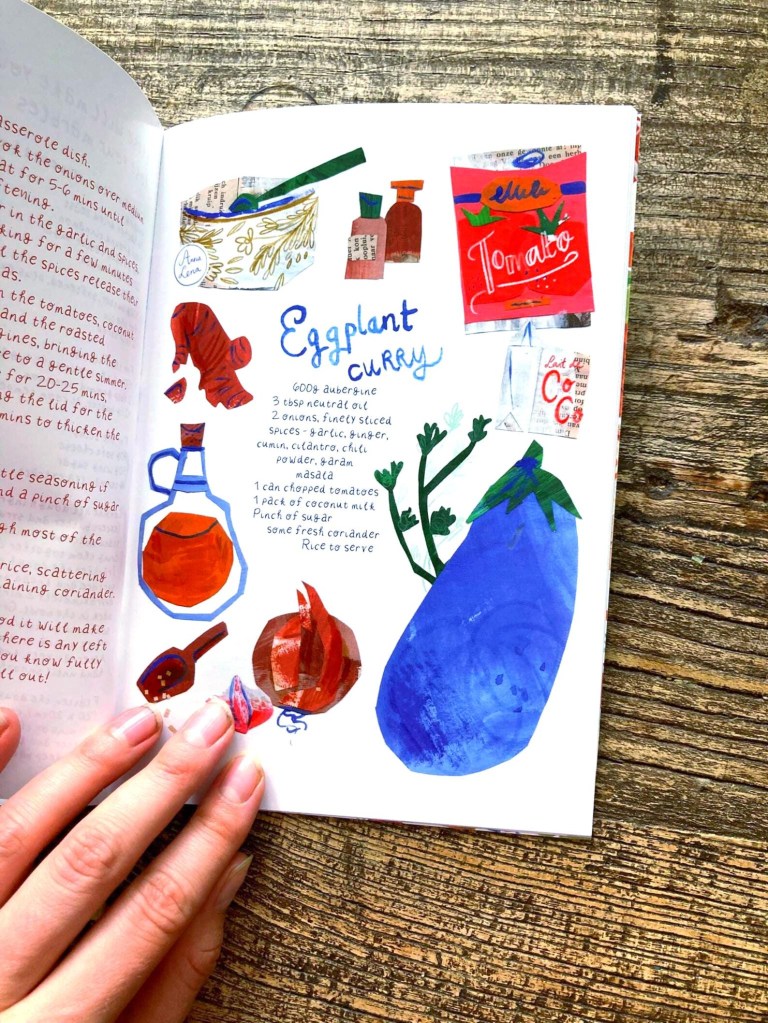 asserole dish.
ok the onions over medium
at for 5-6 mins until
ftening.
r in the garlic and spices,
king for a few minutes
l the spices release their
as.
n the tomatoes, coconut
and the roasted
gines, bringing the
e to a gentle simmer.
for 20-25 mins,
g the lid for the
mins to thicken the
ttle seasoning if
nd a pinch of sugar
gh most of the
rice, scattering
aining coriander.
od it will make
here is any left
ou know fully
ll out!
Anna
Lena
Tomato
Eggplant
CURRY
Co
Co
600g aubergine
3 tbsp neutral oil
2 onions, finely sliced
spices - garlic, ginger,
cumin, cilantro, chili
powder, garam
masala
1 can chopped tomatoes
1 pack of coconut milk
Pinch of sugar
some fresh coriander
Rice to serve